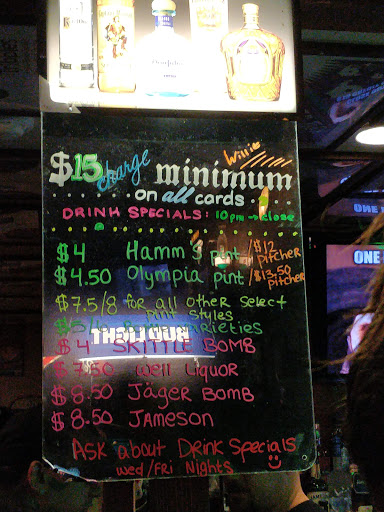 $15 charge minimum
Willie
on all cards
DRINK SPECIALS: 10pm → close
$4 Hamm's pint / $12 pitcher
$4.50 Olympia pint / $13.50 pitcher
$7.5/8 for all other select
pint styles
varieties
$4 SKITTLE BOMB
$7.50 Well Liquor
$8.50 Jäger BOMB
$8.50 JAMESON
Ask about Drink Specials
Wed/Fri Nights
ONE